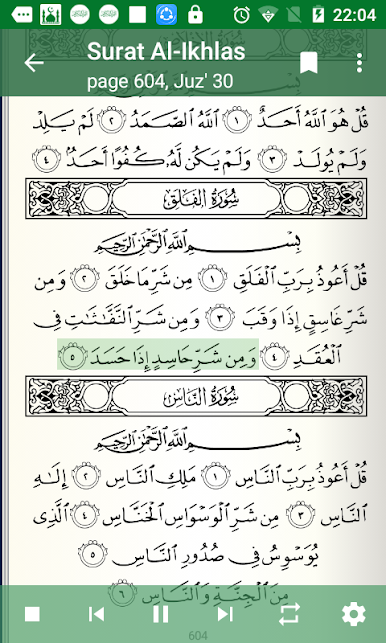 22:04
Surat Al-Ikhlas
page 604, Juz' 30
قُلْ هُوَ ٱللَّهُ أَحَدٌ ١ ٱللَّهُ ٱلصَّمَدُ ٢ لَمْ يَلِدْ
وَلَمْ يُولَدْ ٣ وَلَمْ يَكُن لَّهُۥ كُفُوًا أَحَدٌۢ ٤
سُورَةُ الفَلَقِ
بِسْمِ ٱللَّهِ ٱلرَّحْمَٰنِ ٱلرَّحِيمِ
قُلْ أَعُوذُ بِرَبِّ ٱلْفَلَقِ ١ مِن شَرِّ مَا خَلَقَ ٢ وَمِن
شَرِّ غَاسِقٍ إِذَا وَقَبَ ٣ وَمِن شَرِّ ٱلنَّفَّٰثَٰتِ فِى
ٱلْعُقَدِ ٤ وَمِن شَرِّ حَاسِدٍ إِذَا حَسَدَ ٥
سُورَةُ النَّاسِ
بِسْمِ ٱللَّهِ ٱلرَّحْمَٰنِ ٱلرَّحِيمِ
قُلْ أَعُوذُ بِرَبِّ ٱلنَّاسِ ١ مَلِكِ ٱلنَّاسِ ٢ إِلَٰهِ
ٱلنَّاسِ ٣ مِن شَرِّ ٱلْوَسْوَاسِ ٱلْخَنَّاسِ ٤ ٱلَّذِى
يُوَسْوِسُ فِى صُدُورِ ٱلنَّاسِ ٥
مِنَ ٱلْجِنَّةِ وَٱلنَّاسِ ٦
604